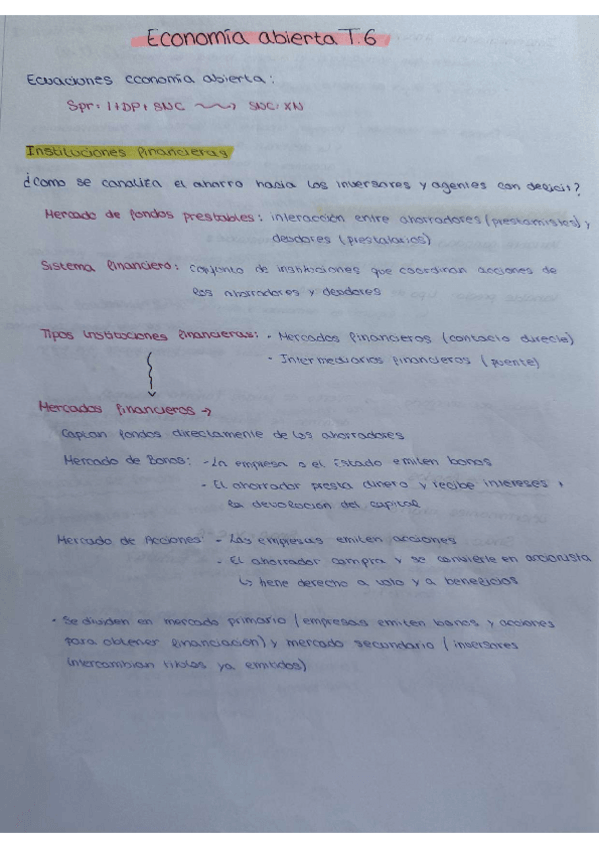 Economía abierta T.6
Ecuaciones economía abierta:
Spr= I+DP+SNC ⟿ SNC=XN
Instituciones financieras
¿Como se canaliza el ahorro hacia los inversores y agentes con deficit?
Mercado de fondos prestables: interacción entre ahorradores (prestamistas) y
deudores (prestatarios)
Sistema financiero: conjunto de instituciones que coordinan acciones de
los ahorradores y deudores
Tipos instituciones financieras: · Mercados financieros (contacto directo)
· Intermediarios financieros (puente)
Mercados financieros →
Captan fondos directamente de los ahorradores
Mercado de Bonos: - La empresa o el Estado emiten bonos
- El ahorrador presta dinero y recibe intereses y
la devolución del capital
Mercado de Acciones: - Las empresas emiten acciones
- El ahorrador compra y se convierte en accionista
↳ tiene derecho a voto y a beneficios
· Se dividen en mercado primario (empresas emiten bonos y acciones
para obtener financiación) y mercado secundario (inversores
intercambian títulos ya emitidos)